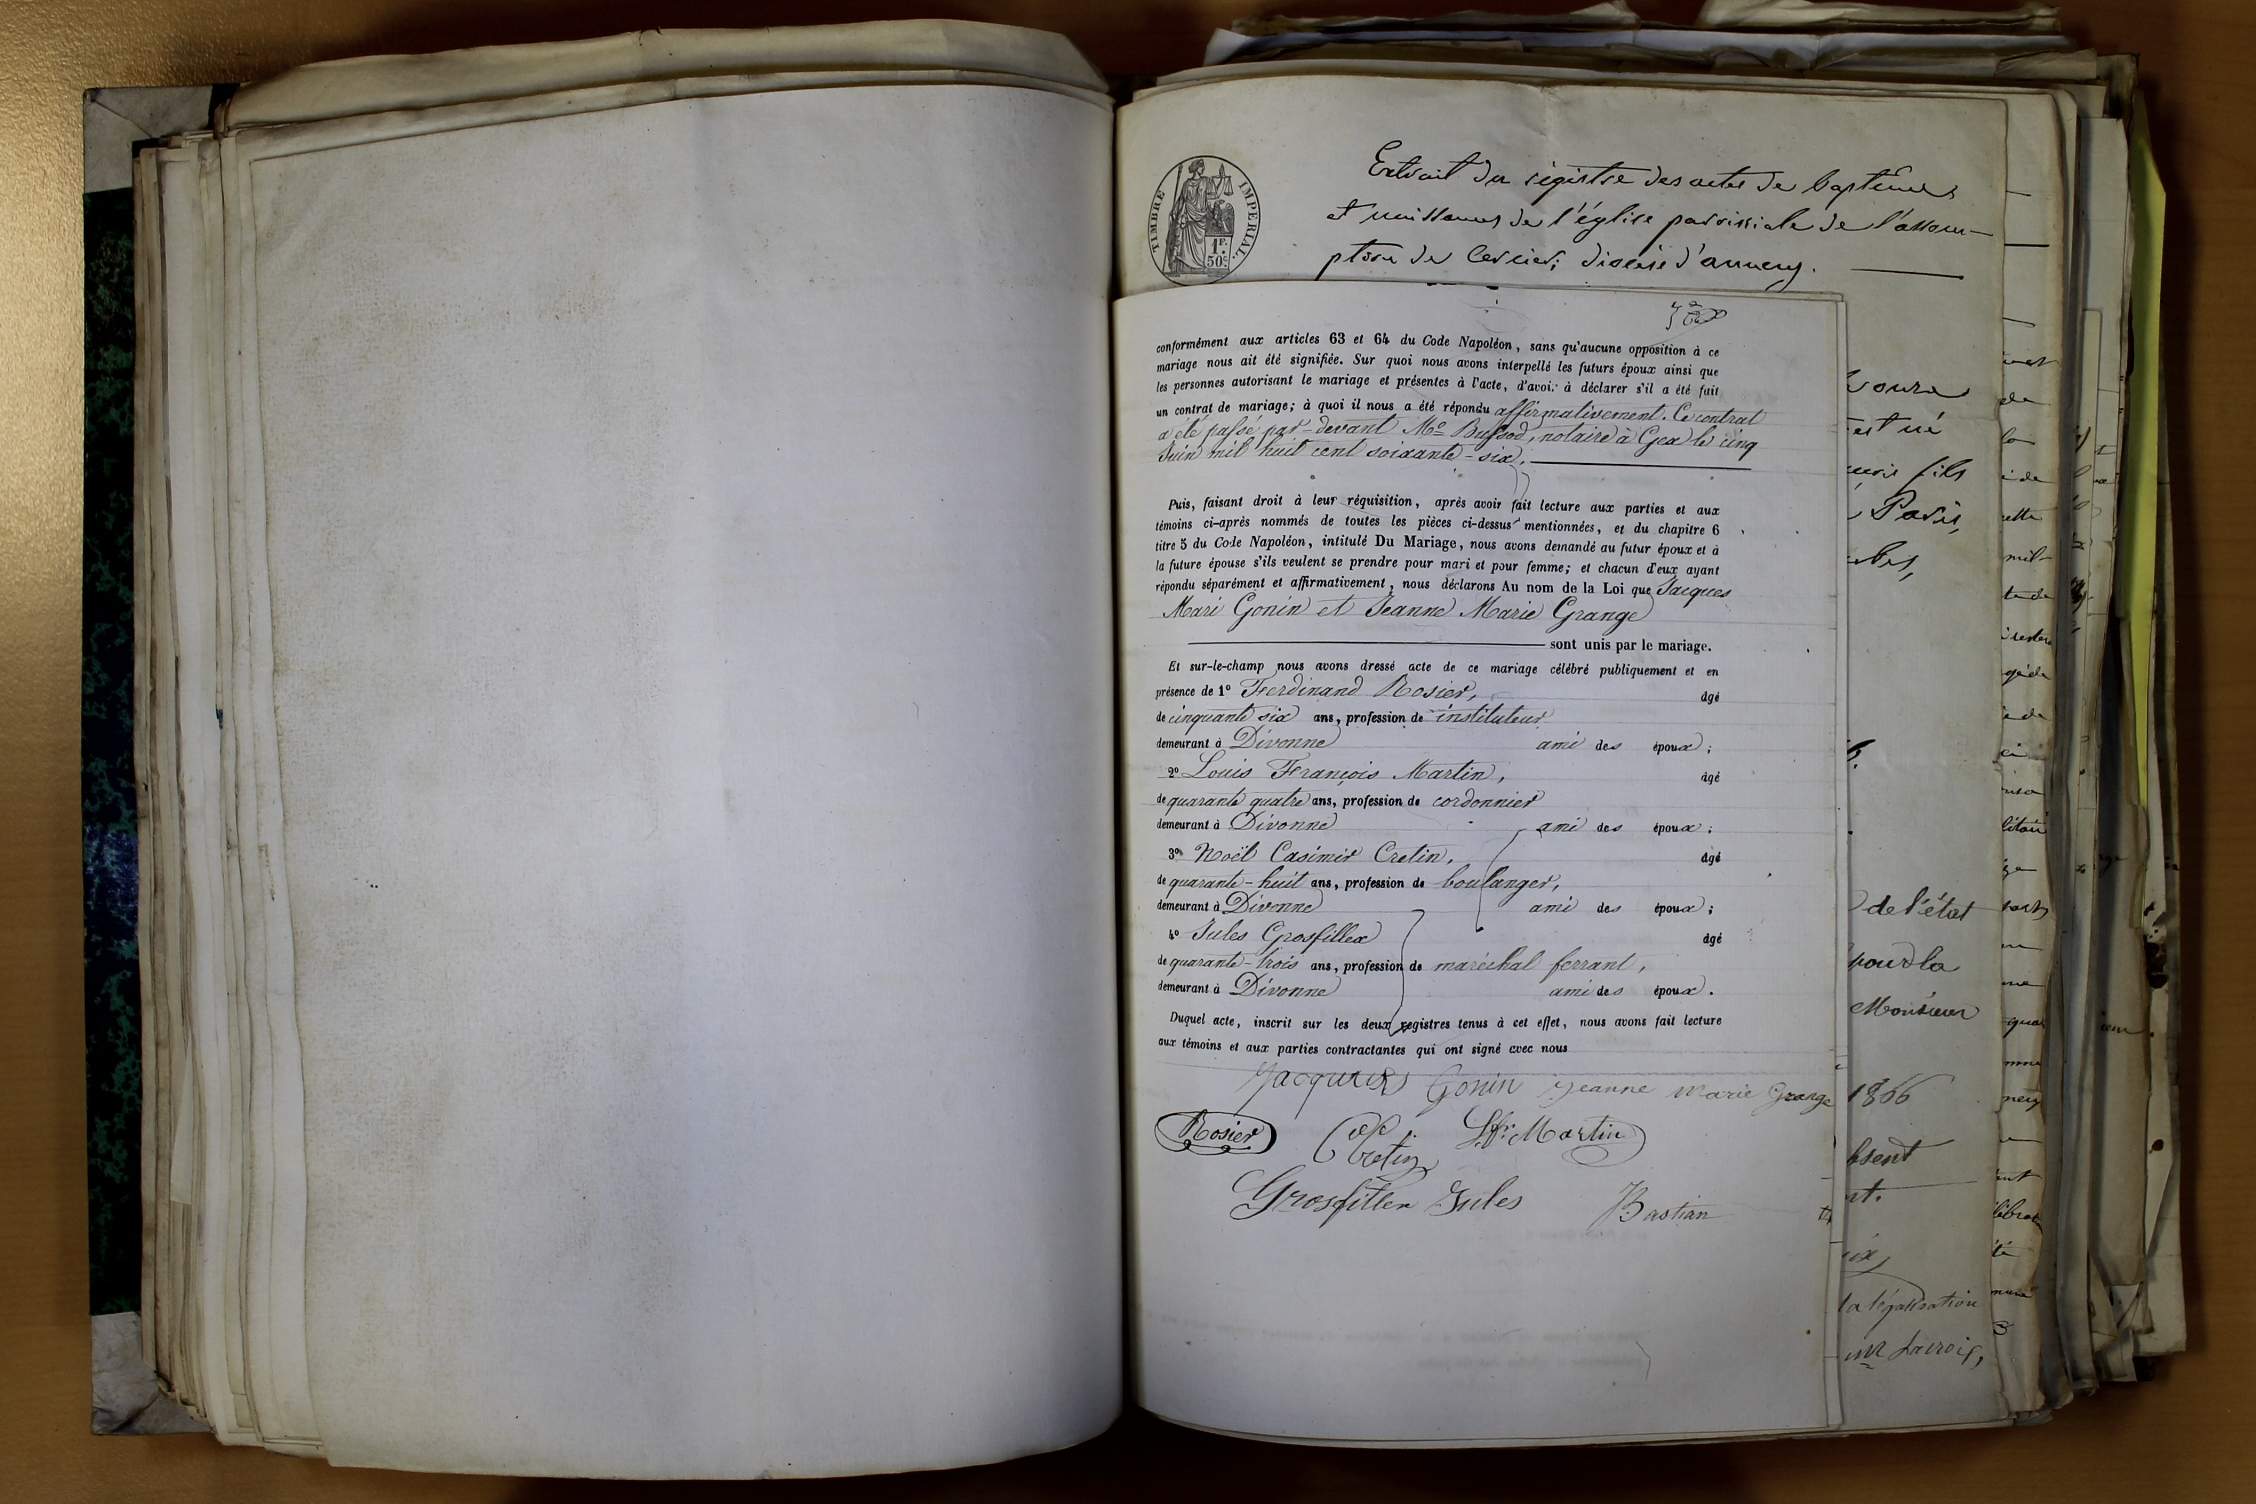 TIMBRE IMPERIAL.
1F.
50c.
Extrait du registre des actes de baptêmes
et naissances de l'église paroissiale de l'assom-
ption de Cercier, diocèse d'annecy.
conformément aux articles 63 et 64 du Code Napoléon, sans qu'aucune opposition à ce
mariage nous ait été signifiée. Sur quoi nous avons interpellé les futurs époux ainsi que
les personnes autorisant le mariage et présentes à l'acte, d'avoir à déclarer s'il a été fait
un contrat de mariage; à quoi il nous a été répondu affirmativement. Ce contrat
a été passé par-devant Me Bussod, notaire à Gex le cinq
Juin mil huit cent soixante-six.
Puis, faisant droit à leur réquisition, après avoir fait lecture aux parties et aux
témoins ci-après nommés de toutes les pièces ci-dessus mentionnées, et du chapitre 6
titre 5 du Code Napoléon, intitulé Du Mariage, nous avons demandé au futur époux et à
la future épouse s'ils veulent se prendre pour mari et pour femme; et chacun d'eux ayant
répondu séparément et affirmativement, nous déclarons Au nom de la Loi que Jacques
Mari Gonin et Jeanne Marie Grange
sont unis par le mariage.
Et sur-le-champ nous avons dressé acte de ce mariage célébré publiquement et en
présence de 1º Ferdinand Rosier, âgé
de cinquante six ans, profession de instituteur
demeurant à Divonne ami des époux;
2º Louis François Martin, âgé
de quarante quatre ans, profession de cordonnier
demeurant à Divonne ami des époux;
3º Noël Casimir Cretin, âgé
de quarante-huit ans, profession de boulanger,
demeurant à Divonne ami des époux;
4º Jules Grosfillex âgé
de quarante-trois ans, profession de maréchal ferrant,
demeurant à Divonne ami des époux.
Duquel acte, inscrit sur les deux registres tenus à cet effet, nous avons fait lecture
aux témoins et aux parties contractantes qui ont signé avec nous
Jacques Gonin Jeanne Marie Grange
Rosier Cretin L.fs. Martin
Grosfillex Jules Bastian
est né
fils
Paris,
de l'état
pour la
Monsieur
1866
la légalisation
Lacroix,